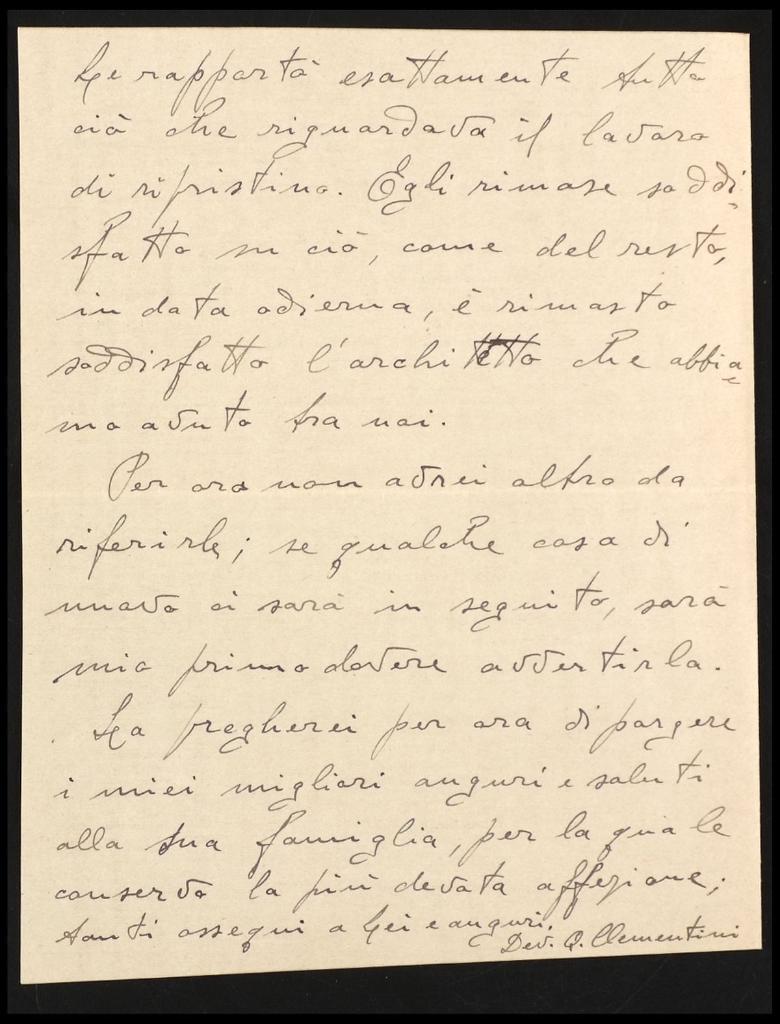 Le rapportò esattamente tutto
ciò che riguardava il lavoro
di ripristino. Egli rimase soddi=
sfatto su ciò, come del resto,
in data odierna, è rimasto
soddisfatto l'architetto che abbia=
mo avuto fra noi.
Per ora non avrei altro da
riferirle; se qualche cosa di
nuovo ci sarà in seguito, sarà
mio primo dovere avvertirla.
La pregherei per ora di porgere
i miei migliori auguri e saluti
alla Sua famiglia, per la quale
conservo la più devota affezione;
tanti ossequi a Lei e auguri.
Dev. Q. Clementini